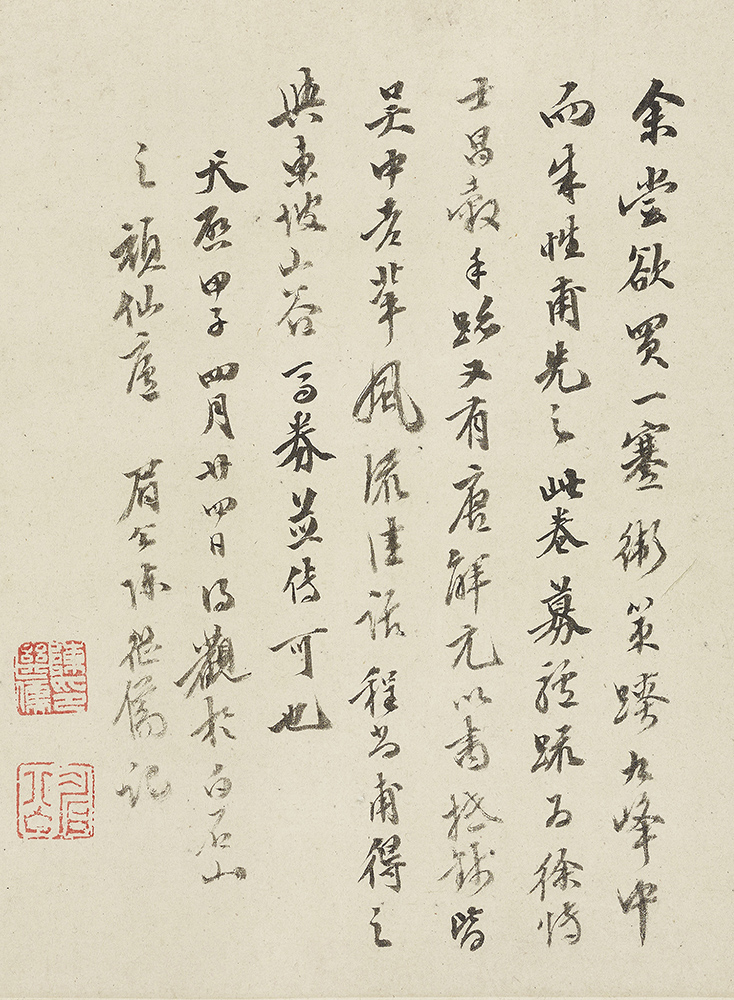 余嘗欲買一蹇衛策蹄九峰中
而朱性甫先之此卷募驢疏為徐博
士昌穀手跡又有唐解元以書抵錢皆
吳中老輩風流佳話程尚甫得之
與東坡山谷馬券並傳可也
天啓甲子四月廿四日得觀於白石山
之頑仙廬 眉公陳繼儒記
陳印繼儒
眉公